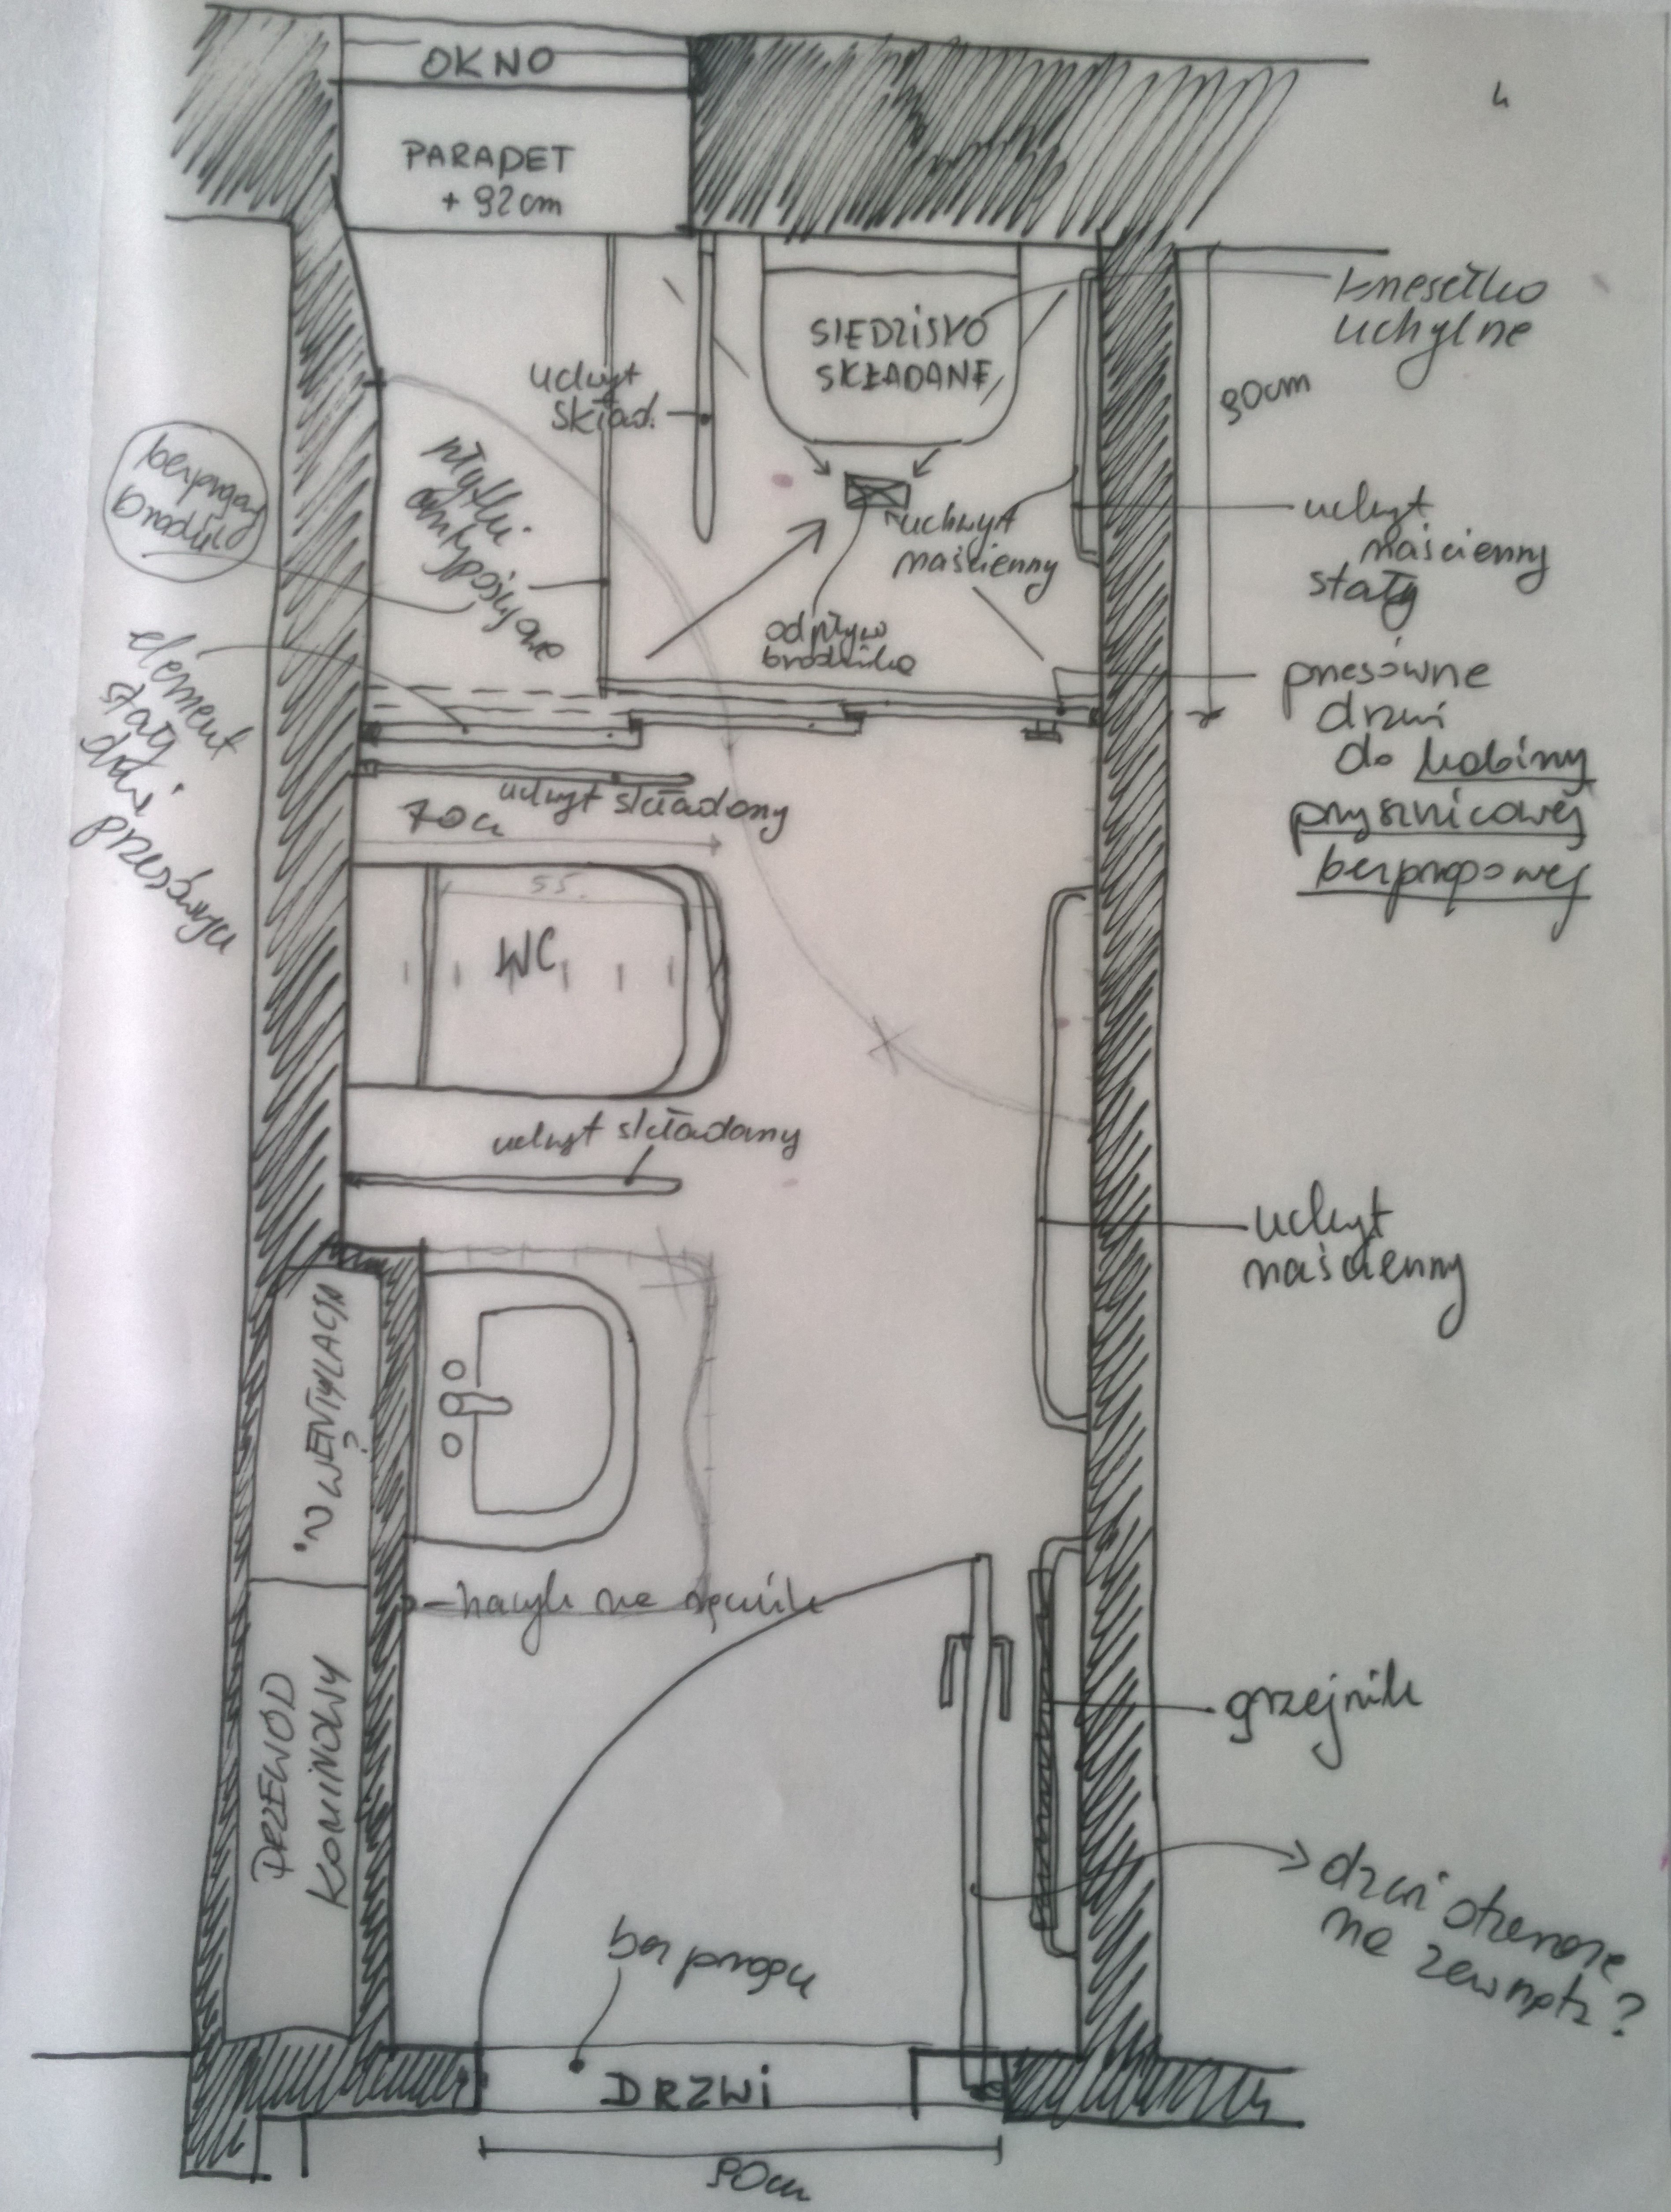 OKNO
PARAPET
+ 92cm
SIEDZISKO
SKŁADANE
krzesełko
uchylne
90cm
uchwyt
skład.
bezprogowy
brodzik
płytki
antypoślizgowe
uchwyt
naścienny
uchwyt
naścienny
stały
odpływ
brodzika
element
stały
drzwi
przesównych
przesówne
drzwi
do kabiny
prysznicowej
bezprogowej
uchwyt składany
70cm
55.
WC
uchwyt składany
uchwyt
naścienny
WENTYLACJA
?
haczyk na ręcznik
PRZEWÓD
KOMINOWY
grzejnik
drzwi otwierane
na zewnątrz?
bez progu
DRZWI
90cm